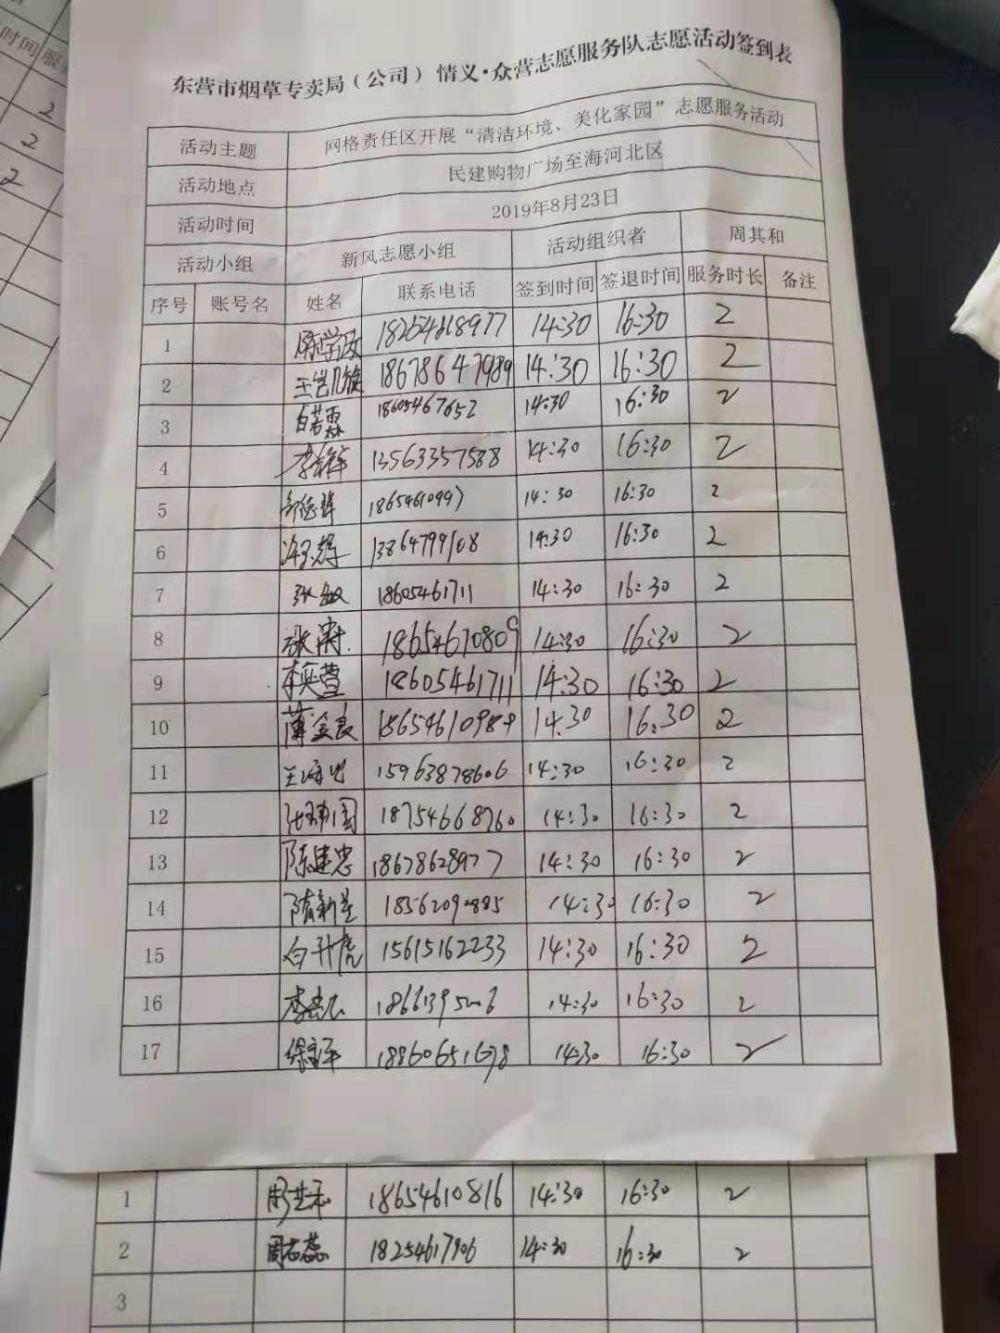 时间
服
2
2
2
东营市烟草专卖局（公司）情义·众营志愿服务队志愿活动签到表
活动主题 网格责任区开展“清洁环境、美化家园”志愿服务活动
活动地点 民建购物广场至海河北区
活动时间 2019年8月23日
活动小组 新风志愿小组 活动组织者 周其和
序号 账号名 姓名 联系电话 签到时间 签退时间 服务时长 备注
1 18254618977 14:30 16:30 2
2 18678647989 14:30 16:30 2
3 白若霖 18605467652 14:30 16:30 2
4 13563357588 14:30 16:30 2
5 18654610997 14:30 16:30 2
6 13864799108 14:30 16:30 2
7 张敏 18605461711 14:30 16:30 2
8 张涛 18654610809 14:30 16:30 2
9 18605461711 14:30 16:30 2
10 薄金良 18654610989 14:30 16:30 2
11 王海忠 15963878606 14:30 16:30 2
12 18754668760 14:30 16:30 2
13 陈建忠 18678628977 14:30 16:30 2
14 隋新星 18562090885 14:30 16:30 2
15 白升虎 15615162233 14:30 16:30 2
16 14:30 16:30 2
17 18860651678 14:30 16:30 2
1 18654610816 14:30 16:30 2
2 周志蕊 18254617906 14:30 16:30 2
3